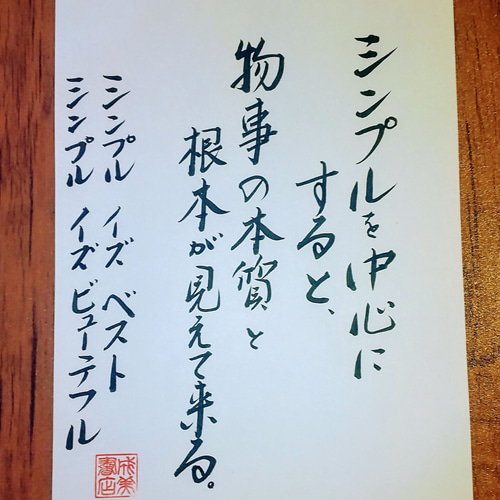 シンプルを中心に
すると、
物事の本質と
根本が見えて来る。
シンプル イズ ベスト
シンプル イズ ビューテフル